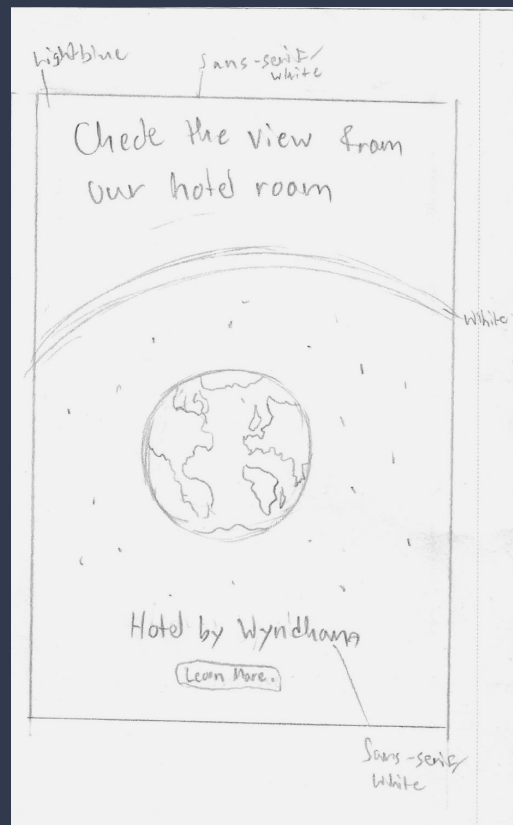 Lightblue
Sans-serif/
white
Check the view from
our hotel room
White
Hotel by Wyndhama
Learn More.
Sans-serif/
White